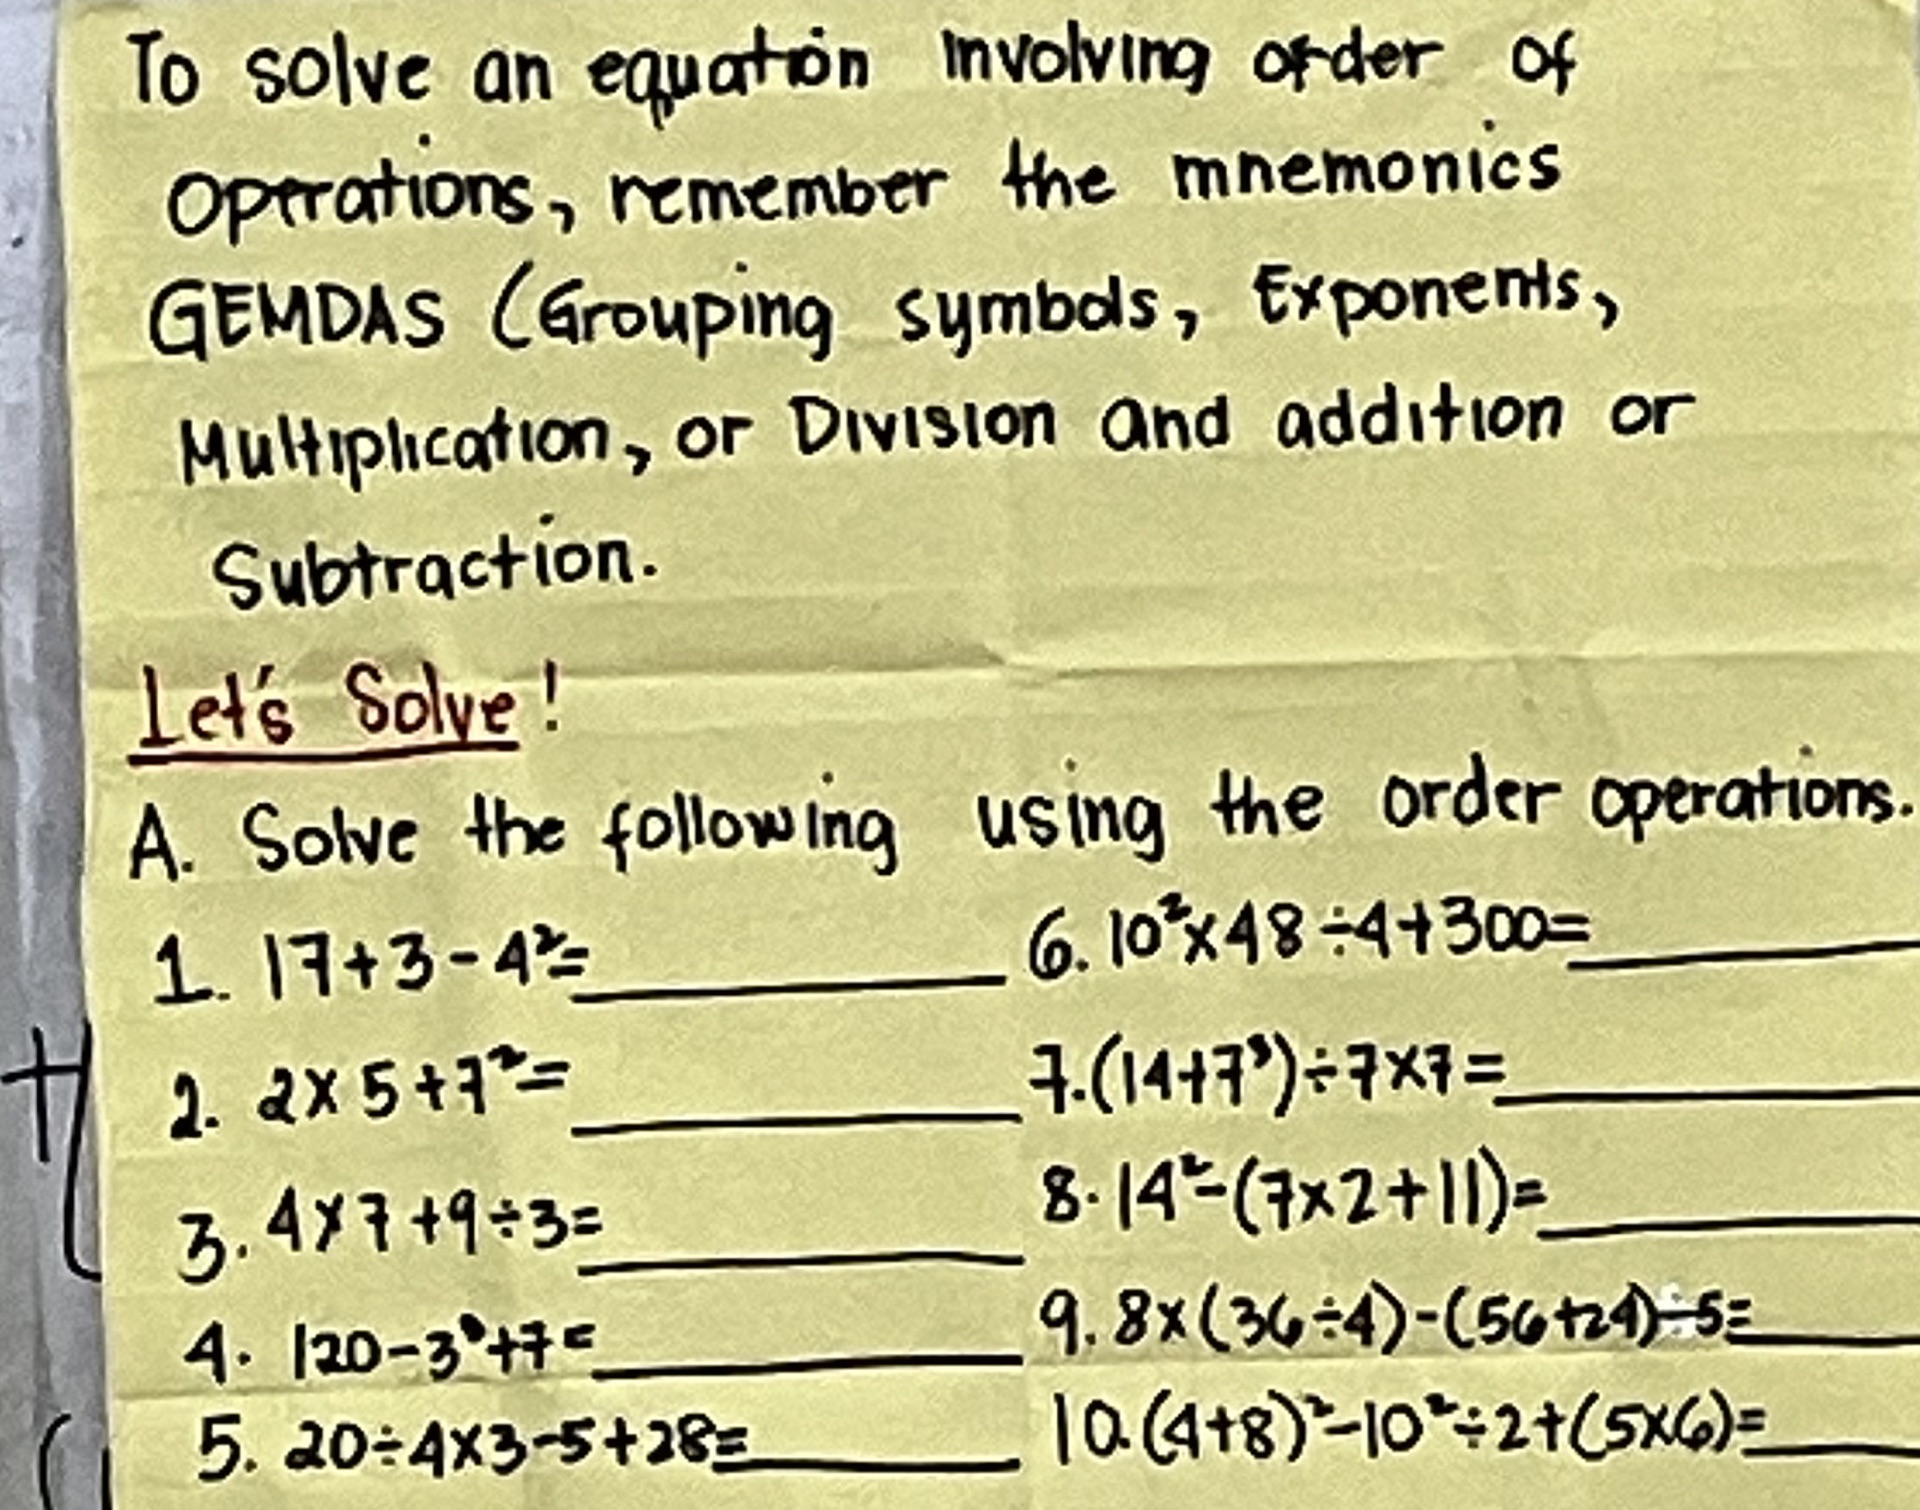 To solve an equation involving order of
Operations, remember the mnemonics
GEMDAS (Grouping symbols, Exponents,
Multiplication, or Division and addition or
Subtraction.
Let's Solve!
A. Solve the following using the order operations.
1. 17+3-4²=
2. 2x5+7²=
3. 4x7+9÷3=
4. 120-3³+7=
5. 20÷4x3-5+28=
6. 10²x48÷4+300=
7. (14+7³)÷7x7=
8. 14²-(7x2+11)=
9. 8x(36÷4)-(56+24)÷5=
10. (4+8)²-10²÷2+(5x6)=